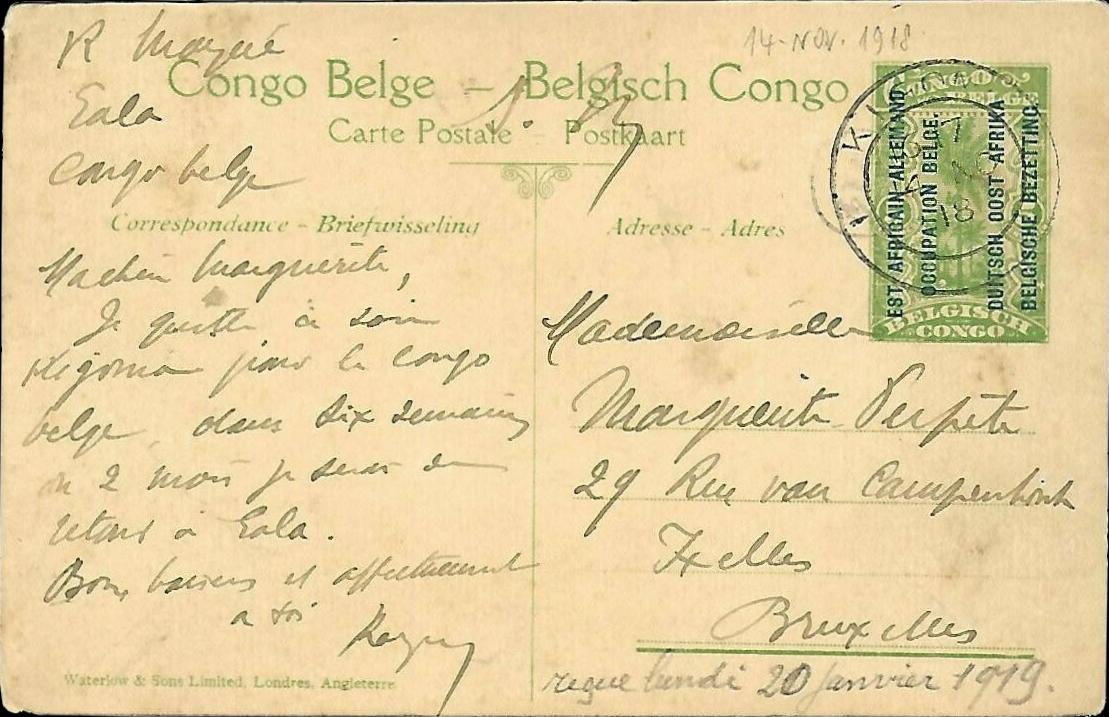 14-NOV. 1918
R Mayné
Eala
Congo belge
Congo Belge - Belgisch Congo
Carte Postale - Postkaart
S. M
CONGO
BELGE
EST AFRICAIN ALLEMAND
OCCUPATION BELGE.
DUITSCH OOST AFRIKA
BELGISCHE BEZETTING.
BELGISCH
CONGO
KIGOMA
18
Correspondance - Briefwisseling
Ma chère Marguerite,
Je quitte ce soir
Kigoma pour le Congo
belge, dans six semaines
ou 2 mois je serai de
retour à Eala.
Bons baisers et affectueusement
a toi
Adresse - Adres
Mademoiselle
Marguerite Perpète
29 Rue van Campenhout
Ixelles
Bruxelles
reçue lundi 20 janvier 1919.
Waterlow & Sons Limited, Londres, Angleterre